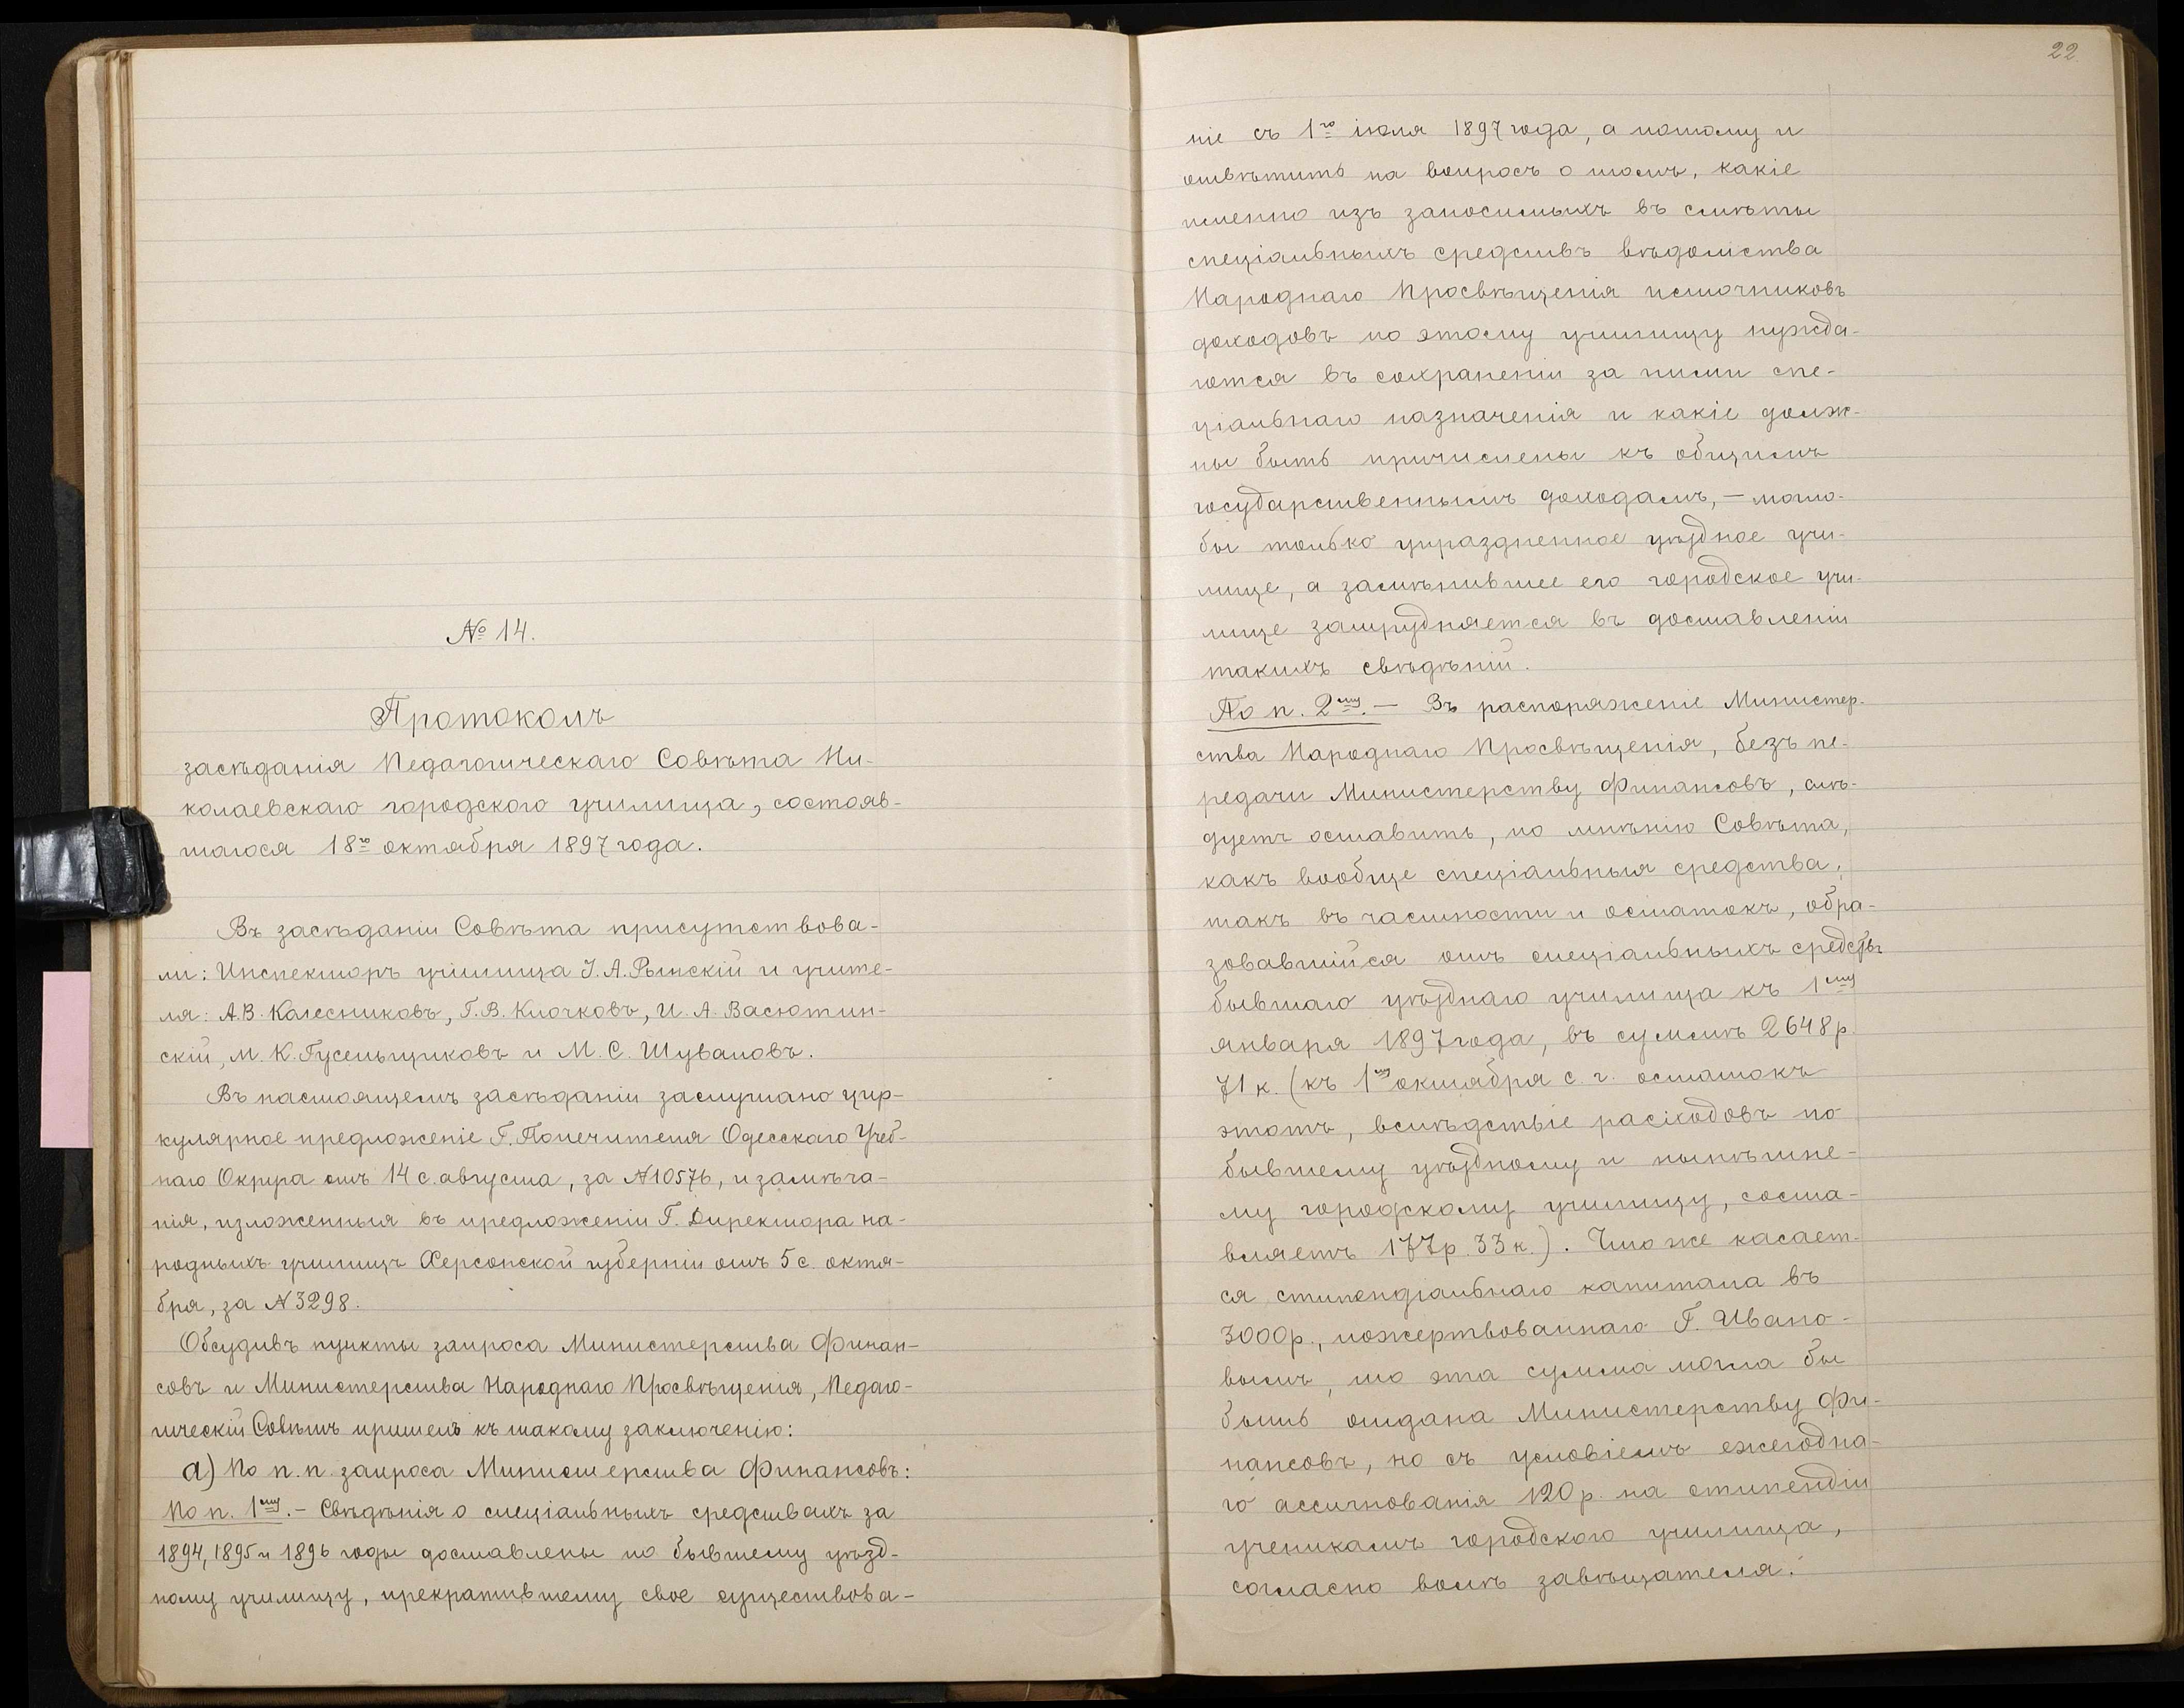 № 14.
Протоколъ
засѣданія Педагогическаго Совѣта Ни-
колаевскаго городского училища, состояв-
шагося 18го октября 1897 года.
Въ засѣданіи Совѣта присутствова-
ли: Инспекторъ училища І. А. Рынскій и учите-
ля: А. В. Колесниковъ, Г. В. Клочковъ, И. А. Васютин-
скій, М. К. Гусельщиковъ и М. С. Шуваловъ.
Въ настоящемъ засѣданіи заслушано цир-
кулярное предложеніе Г. Попечителя Одесскаго Учеб-
наго Округа отъ 14 с. августа, за №10576, и замѣча-
нія, изложенныя въ предложеніи Г. Директора на-
родныхъ училищъ Херсонской губерніи отъ 5 с. октя-
бря, за № 3298.
Обсудивъ пункты запроса Министерства Финан-
совъ и Министерства Народнаго Просвѣщенія, Педаго-
гическій Совѣтъ пришелъ къ такому заключенію:
а) По п. п. запроса Министерства Финансовъ:
По п. 1му. – Свѣдѣнія о спеціальныхъ средствахъ за
1894, 1895 и 1896 годы доставлены по бывшему уѣзд-
ному училищу, прекратившему свое существова-
22
ніе съ 1го іюля 1897 года, а потому и
отвѣтить на вопросъ о томъ, какіе
именно изъ заносимыхъ въ смѣты
спеціальныхъ средствъ вѣдомства
Народнаго Просвѣщенія источниковъ
доходовъ по этому училищу нужда-
ются въ сохраненіи за ними спе-
ціальнаго назначенія и какіе долж-
ны быть причислены къ общимъ
государственнымъ доходамъ, – могло-
бы только упраздненное уѣздное учи-
лище, а замѣнившее его городское учи-
лище затрудняется въ доставленіи
такихъ свѣдѣній.
По п. 2му. – Въ распоряженіе Министер-
ства Народнаго Просвѣщенія, безъ пе-
редачи Министерству Финансовъ, слѣ-
дуетъ оставить, по мнѣнію Совѣта,
какъ вообще спеціальныя средства,
такъ въ частности и остатокъ, обра-
зовавшійся отъ спеціальныхъ средствъ
бывшаго уѣзднаго училища къ 1му
января 1897 года, въ суммѣ 2648 р.
71 к. (къ 1му октября с. г. остатокъ
этотъ, вслѣдствіе расходовъ по
бывшему уѣздному и нынѣшне-
му городскому училищу, соста-
вляетъ 177 р. 33 к.). Что же касает-
ся стипендіальнаго капитала въ
3000 р., пожертвованнаго Г. Ивано-
вымъ, то эта сумма могла бы
быть отдана Министерству Фи-
нансовъ, но съ условіемъ ежегодна-
го ассигнованія 120 р. на стипендіи
ученикамъ городского училища,
согласно волѣ завѣщателя.